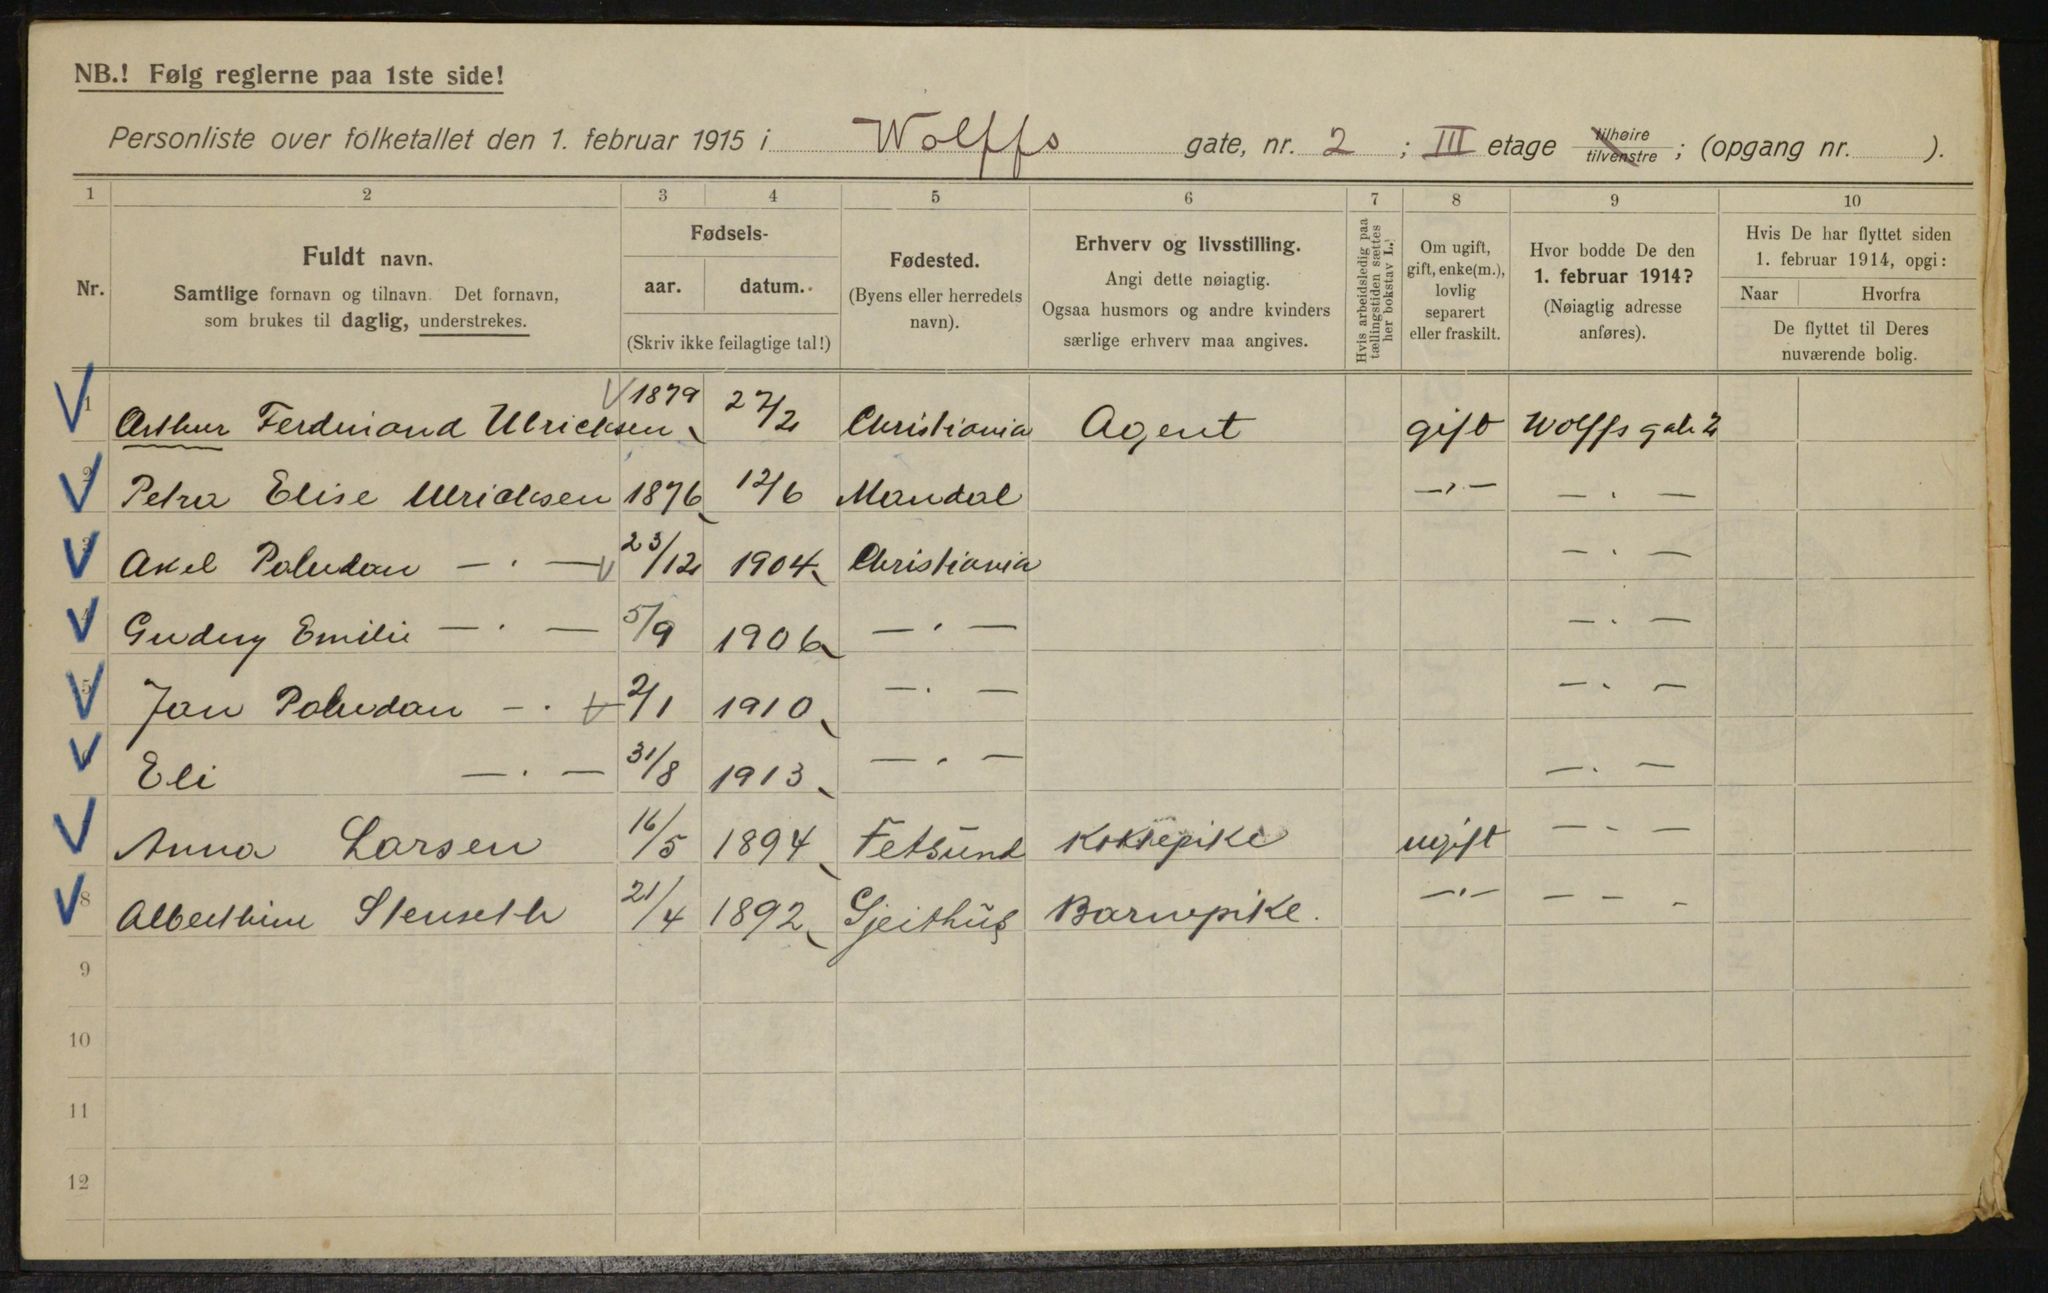 NB.! Følg reglerne paa 1ste side!
Personliste over folketallet den 1. februar 1915 i Wolffs gate, nr. 2 ; III etage tilhøire tilvenstre ; (opgang nr. ).
1 2 3 4 5 6 7 8 9 10
Nr.
Fuldt navn.
Samtlige fornavn og tilnavn. Det fornavn,
som brukes til daglig, understrekes.
Fødsels-
aar. datum.
(Skriv ikke feilagtige tal!)
Fødested.
(Byens eller herredets
navn).
Erhverv og livsstilling.
Angi dette nøiagtig.
Ogsaa husmors og andre kvinders
særlige erhverv maa angives.
Hvis arbeidsledig paa
tællingstiden sættes
her bokstav L.
Om ugift,
gift, enke(m.),
lovlig
separert
eller fraskilt.
Hvor bodde De den
1. februar 1914?
(Nøiagtig adresse
anføres).
Hvis De har flyttet siden
1. februar 1914, opgi:
Naar Hvorfra
De flyttet til Deres
nuværende bolig.
1 Arthur Ferdinand Ulricksen 1879 27/2 Christiania Agent gift Wolffs gate 2
2 Petra Elise Ulricksen 1876 12/6 Mandal —„— — . —
3 Axel Paludan — . — 23/12 1904 Christiania — . —
4 Gudny Emilie — . — 5/9 1906 — . — — . —
5 Jan Paludan — . — 2/1 1910 — . — — . —
6 Eli — . — 31/8 1913 — . — — . —
Anna Larsen 16/5 1894 Fetsund Kokkepike ugift — . —
8 Alberthine Stenseth 21/4 1892 Gjeithus Barnepike. —„— — — -
9
10
11
12